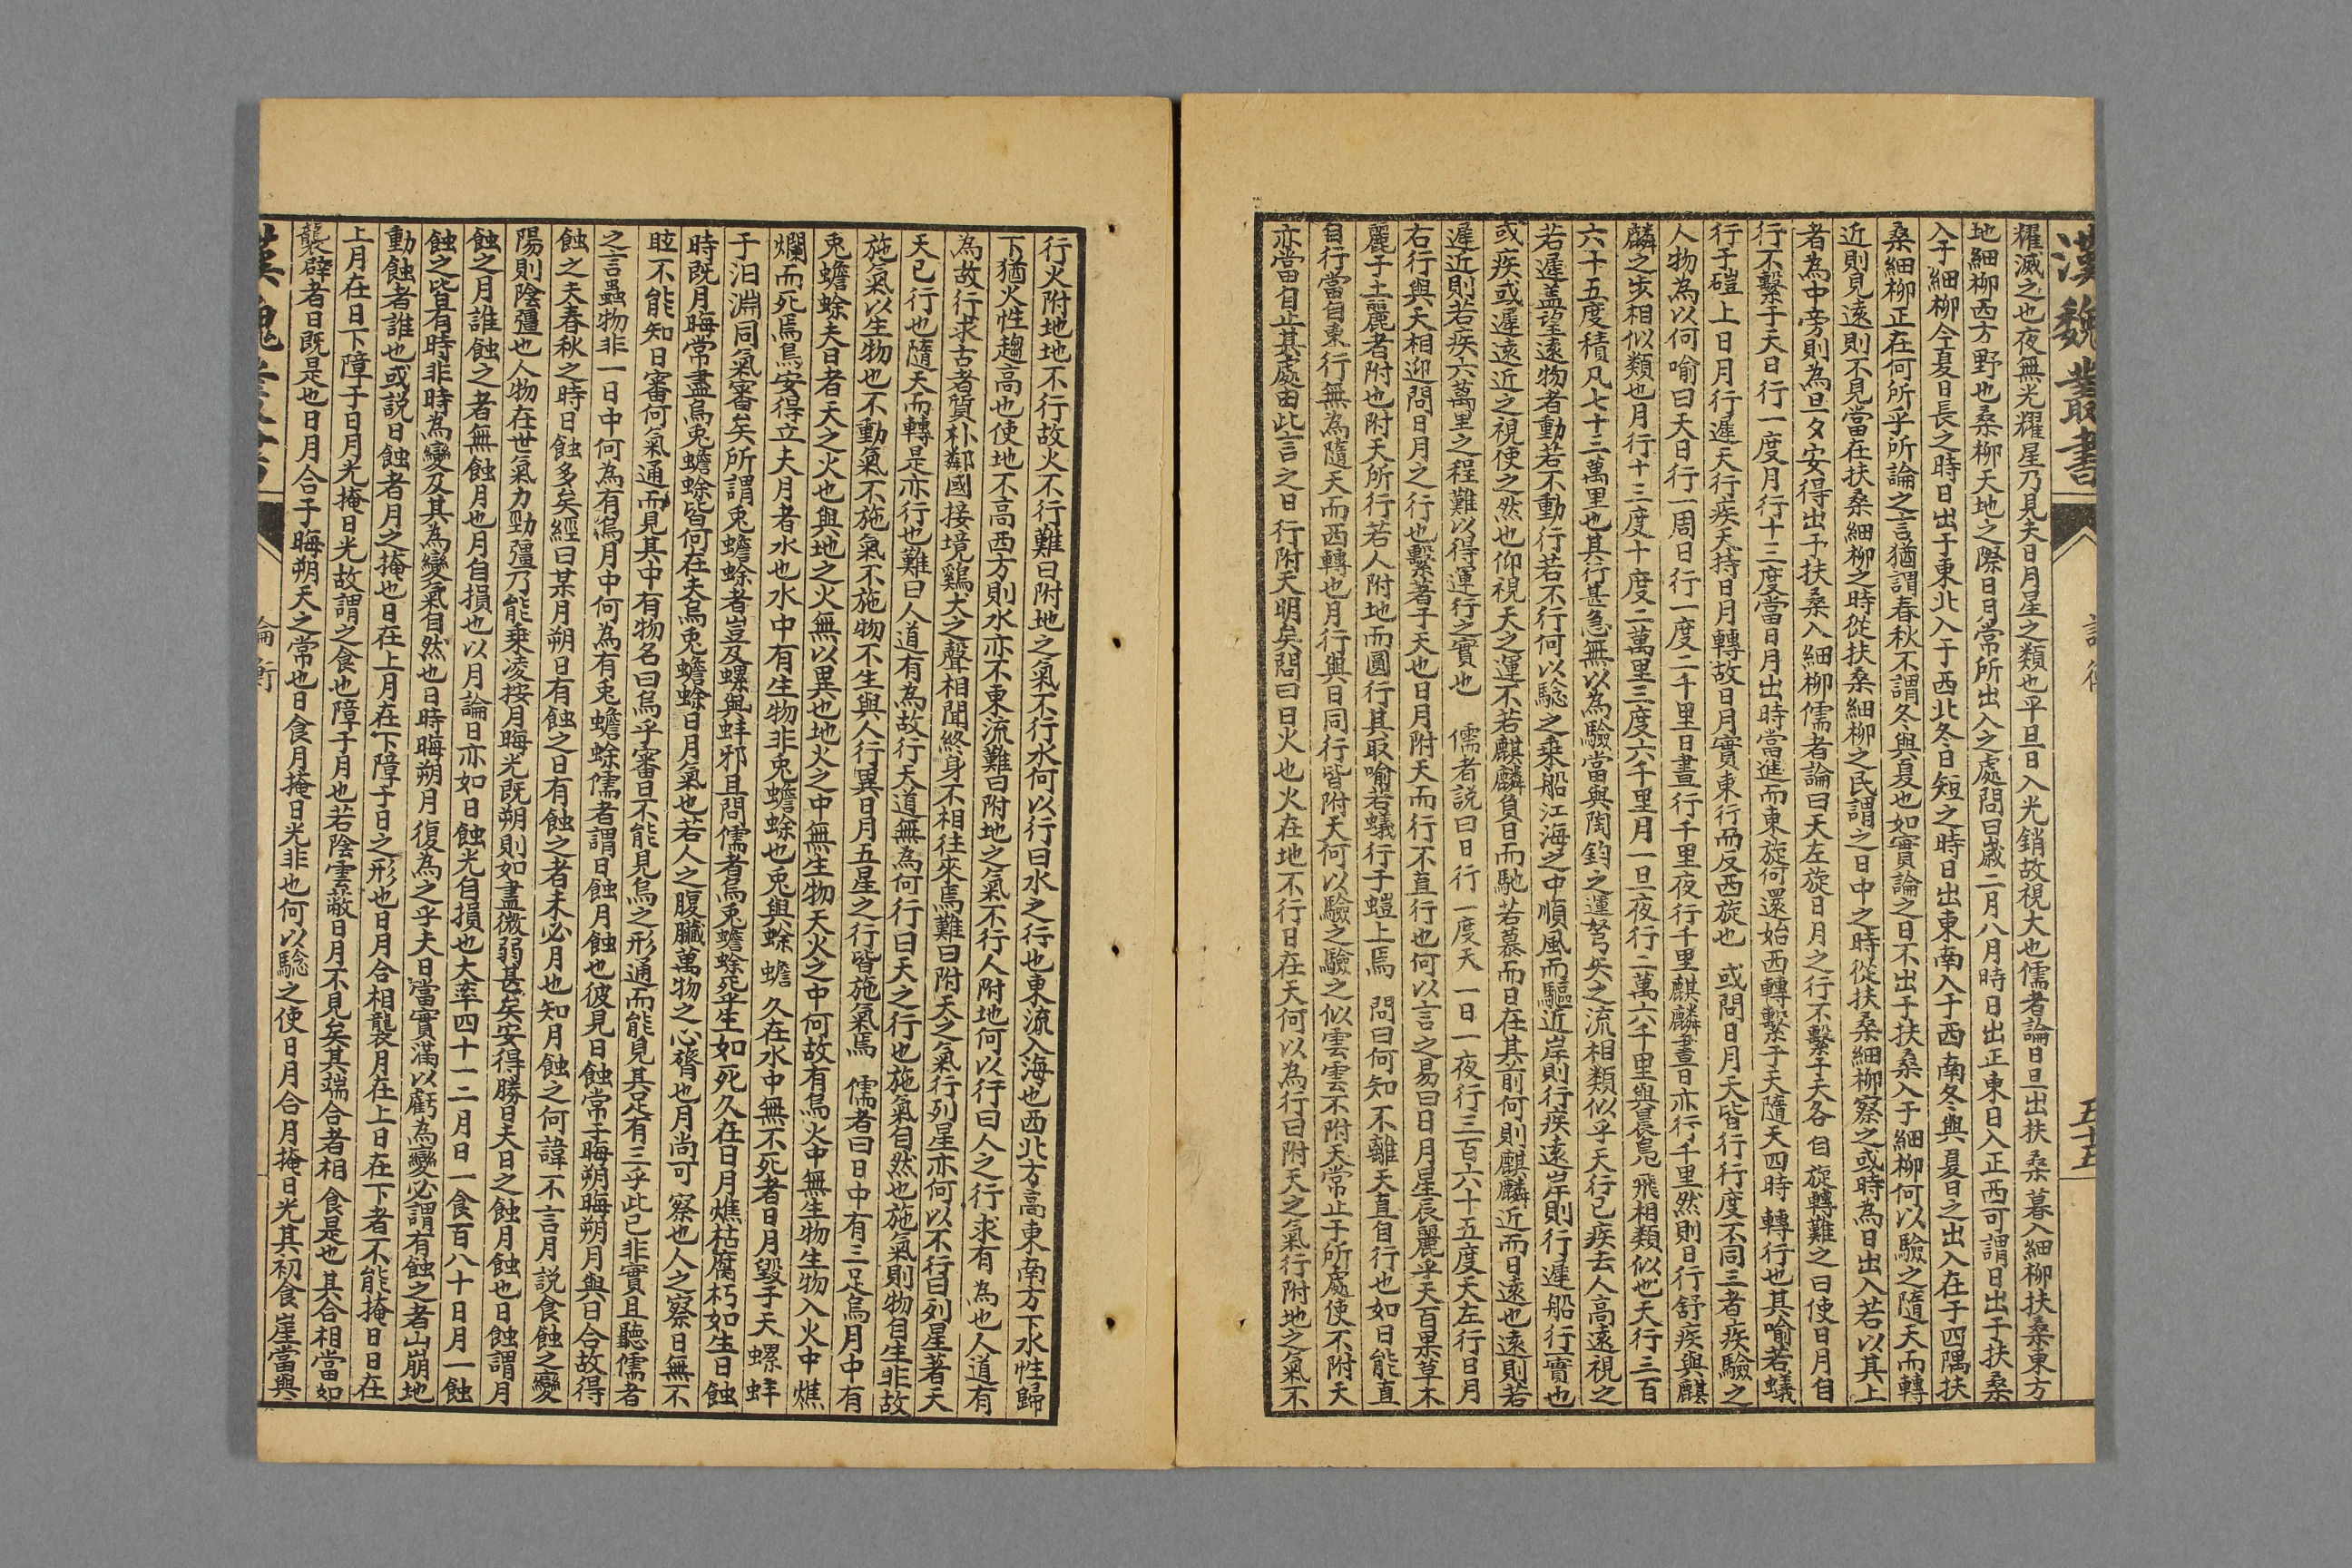 漢魏叢書
論衡
五十五
耀滅之也夜無光耀星乃見夫日月星之類也平旦日入光銷故視大也儒者論日旦出扶桑暮入細柳扶桑東方
地細柳西方野也桑柳天地之際日月常所出入之處問曰歲二月八月時日出正東日入正西可謂日出于扶桑
入于細柳今夏日長之時日出于東北入于西北冬日短之時日出東南入于西南冬與夏日之出入在于四隅扶
桑細柳正在何所乎所論之言猶謂春秋不謂冬與夏也如實論之日不出于扶桑入于細柳何以驗之隨天而轉
近則見遠則不見當在扶桑細柳之時從扶桑細柳之民謂之日中之時從扶桑細柳察之或時為日出入若以其上
者為中旁則為旦夕安得出于扶桑入細柳儒者論曰天左旋日月之行不繫于天各自旋轉難之曰使日月自
行不繫于天日行一度月行十三度當日月出時當進而東旋何還始西轉繫于天隨天四時轉行也其喻若蟻
行于磑上日月行遲天行疾天持日月轉故日月實東行而反西旋也 或問日月天皆行行度不同三者疾驗之
人物為以何喻曰天日行一周日行一度二千里日晝行千里夜行千里麒麟晝日亦行千里然則日行舒疾與麒
麟之步相似類也月行十三度十度二萬里三度六千里月一旦夜行二萬六千里與晨鳧飛相類似也天行三百
六十五度積凡七十三萬里也其行甚急無以為驗當與陶鈞之運弩矢之流相類似乎天行已疾去人高遠視之
若遲盖望遠物者動若不動行若不行何以騐之乘船江海之中順風而驅近岸則行疾遠岸則行遲船行實也
或疾或遲遠近之視使之然也仰視天之運不若麒麟負日而馳若暮而日在其前何則麒麟近而日遠也遠則若
遲近則若疾六萬里之程難以得運行之實也 儒者說曰日行一度天一日一夜行三百六十五度天左行日月
右行與天相迎問日月之行也繫著于天也日月附天而行不直行也何以言之易曰日月星辰麗乎天百果草木
麗于土麗者附也附天所行若人附地而圓行其取喻若蟻行于磑上焉 問曰何知不離天直自行也如日能直
自行當自東行無為隨天而西轉也月行與日同行皆附天何以驗之驗之似雲雲不附天常止于所處使不附天
亦當自止其處由此言之日行附天明矣問曰日火也火在地不行日在天何以為行曰附天之氣行附地之氣不
行火附地地不行故火不行難曰附地之氣不行水何以行曰水之行也東流入海也西北方高東南方下水性歸
下猶火性趨高也使地不高西方則水亦不東流難曰附地之氣不行人附地何以行曰人之行求有為也人道有
為故行求古者質朴鄰國接境鷄犬之聲相聞終身不相往來焉難曰附天之氣行列星亦何以不行曰列星著天
天已行也隨天而轉是亦行也難曰人道有為故行天道無為何行曰天之行也施氣自然也施氣則物自生非故
施氣以生物也不動氣不施氣不施物不生與人行異日月五星之行皆施氣焉 儒者曰日中有三足烏月中有
兎蟾蜍夫日者天之火也與地之火無以異也地火之中無生物天火之中何故有烏火中無生物生物入火中燋
爛而死焉烏安得立夫月者水也水中有生物非兎蟾蜍也兎與蜍蟾久在水中無不死者日月毀于天螺蚌
于汨淵同氣審矣所謂兎蟾蜍者豈反螺與蚌邪且問儒者烏兎蟾蜍死乎生如死久在日月燋枯腐朽如生日蝕
時既月晦常盡烏兎蟾蜍皆何在夫烏兎蟾蜍日月氣也若人之腹臟萬物之心膂也月尚可察也人之察日無不
眩不能知日審何氣通而見其中有物名曰烏乎審日不能見烏之形通而能見其足有三乎此已非實且聽儒者
之言蟲物非一日中何為有烏月中何為有兎蟾蜍儒者謂日蝕月蝕也彼見日蝕常于晦朔晦朔月與日合故得
蝕之夫春秋之時日蝕多矣經曰某月朔日有蝕之日有蝕之者未必月也知月蝕之何諱不言月說食蝕之變
陽則陰彊也人物在世氣力勁彊乃能乘凌按月晦光既朔則如盡微弱甚矣安得勝日夫日之蝕月蝕也日蝕謂月
蝕之月誰蝕之者無蝕月也月自損也以月論日亦如日蝕光自損也大率四十一二月日一食百八十日月一蝕
蝕之皆有時非時為變及其為變氣自然也日時晦朔月復為之乎夫日當實滿以虧為變必謂有蝕之者山崩地
動蝕者誰也或説日蝕者月之掩也日在上月在下障于日之形也日月合相襲月在上日在下者不能掩日日在
上月在日下障于日月光掩日光故謂之食也障于月也若陰雲蔽日月不見矣其端合者相食是也其合相當如
襲辟者日既是也日月合于晦朔天之常也日食月掩日光非也何以騐之使日月合月掩日光其初食崖當與
漢魏叢書
論衡